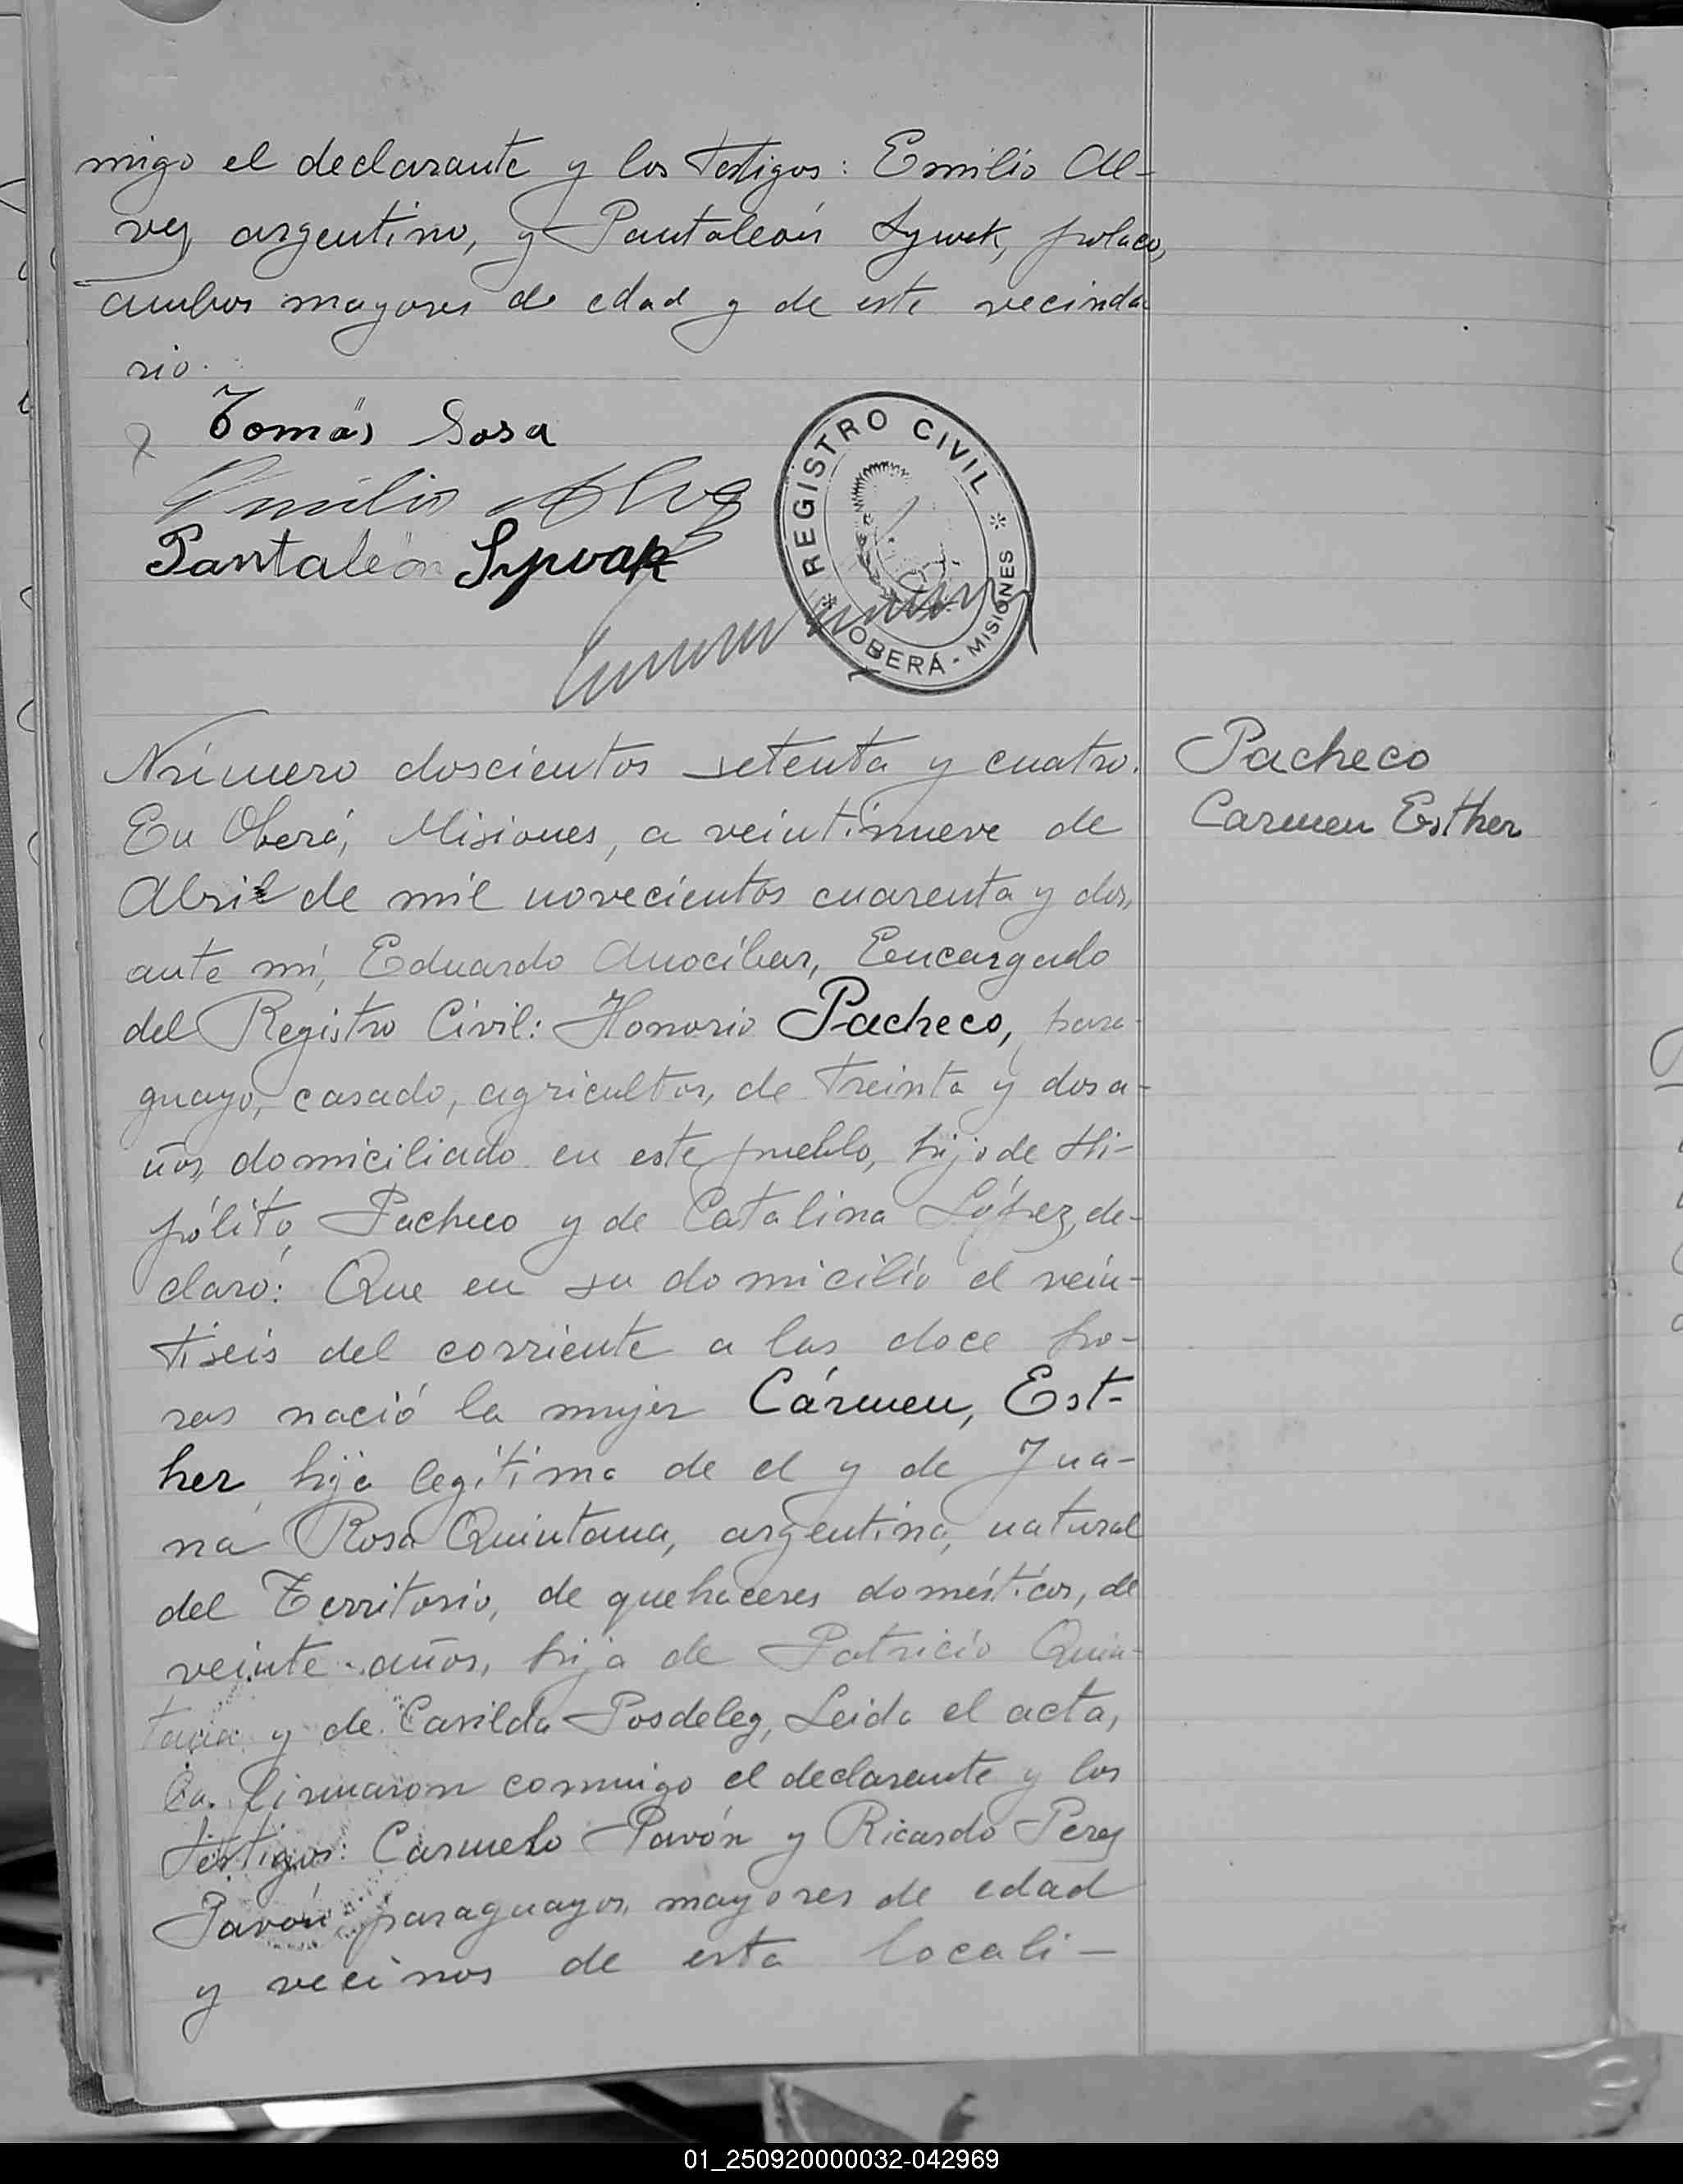 migo el declarante y los testigos: Emilio Al-
vez argentino, y Pantaleón Sywak, polaco,
ambos mayores de edad y de este vecinda
rio.
Tomás Sosa
Emilio Alvez
Pantaleón Sywak
REGISTRO CIVIL
OBERÁ - MISIONES
Número doscientos setenta y cuatro.
Pacheco
Carmen Esther
En Oberá, Misiones, a veintinueve de
Abril de mil novecientos cuarenta y dos,
ante mí, Eduardo Anocíbar, Eencargado
del Registro Civil: Honorio Pacheco, para-
guayo, casado, agricultor, de treinta y dos a-
ños, domiciliado en este pueblo, hijo de Hi-
pólito Pacheco y de Catalina López, de-
claró: Que en su domicilio el vein-
tiseis del corriente a las doce ho-
ras nació la mujer Cármen, Est-
her, hija legítima de el y de Jua-
na Rosa Quintana, argentina, natural
del Territorio, de quehaceres domésticos, de
veinte años, hija de Patricio Quin-
tana y de Casilda Posdeley, Leida el acta,
la firmaron conmigo el declarante y los
testigos: Carmelo Pavón y Ricardo Perez
Pavón paraguayos, mayores de edad
y vecinos de esta locali-
01_250920000032-042969